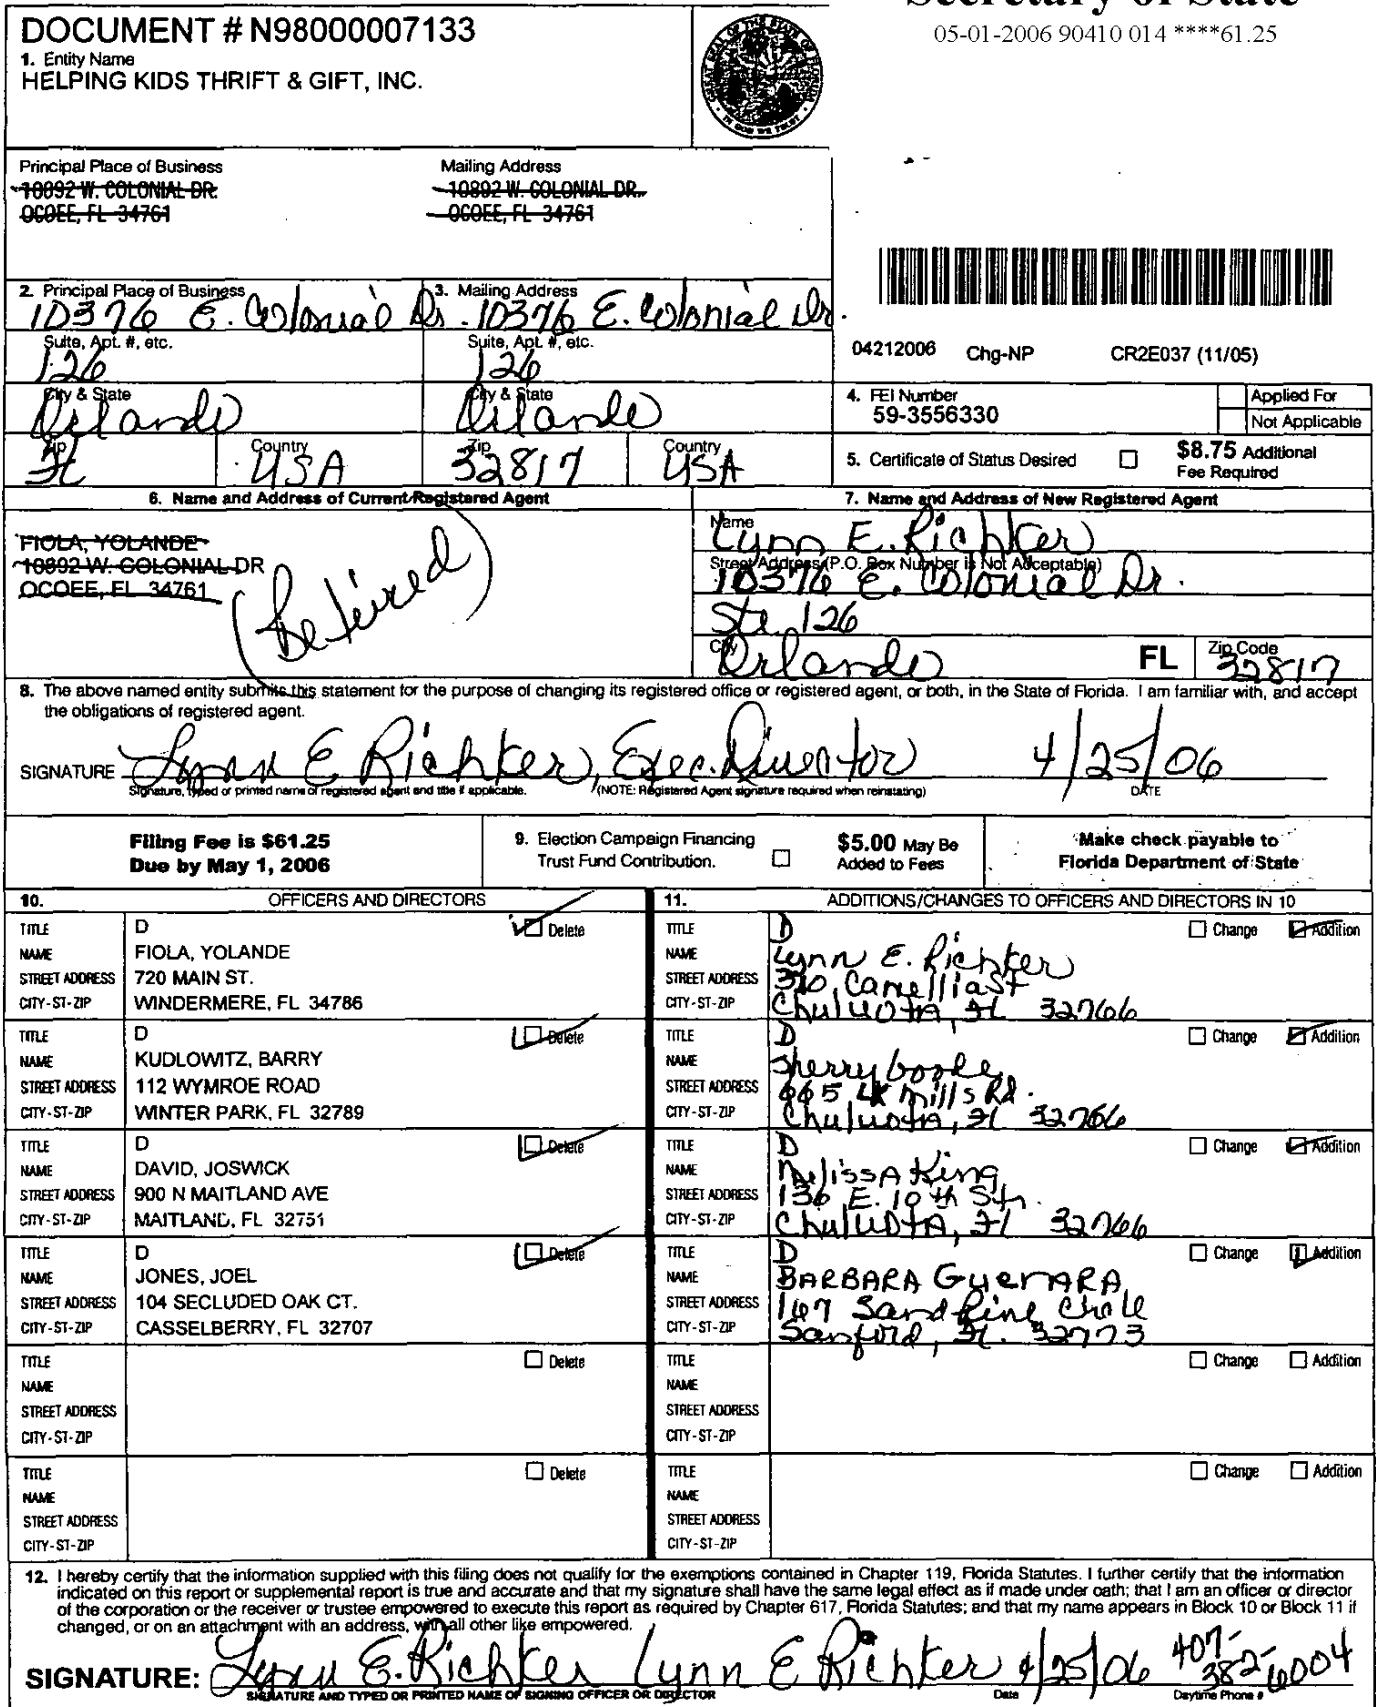 Secretary of State
05-01-2006 90410 014 ****61.25
DOCUMENT # N98000007133
1. Entity Name
HELPING KIDS THRIFT & GIFT, INC.
GREAT SEAL OF THE STATE OF FLORIDA
IN GOD WE TRUST
Principal Place of Business
10892 W. COLONIAL DR.
OCOEE, FL 34761
Mailing Address
10892 W. COLONIAL DR.
OCOEE, FL 34761
2. Principal Place of Business
10376 E. Colonial Dr.
3. Mailing Address
10376 E. Colonial Dr.
Suite, Apt. #, etc.
126
Suite, Apt. #, etc.
126
City & State
Orlando
City & State
Orlando
Zip
Fl
Country
USA
Zip
32817
Country
USA
04212006 Chg-NP CR2E037 (11/05)
4. FEI Number
59-3556330
Applied For
Not Applicable
5. Certificate of Status Desired
$8.75 Additional
Fee Required
6. Name and Address of Current Registered Agent
FIOLA, YOLANDE
10892 W. COLONIAL DR
OCOEE, FL 34761
(Retired)
7. Name and Address of New Registered Agent
Name
Lynn E. Richker
Street Address (P.O. Box Number is Not Acceptable)
10376 E. Colonial Dr.
Ste. 126
City
Orlando
FL
Zip Code
32817
8. The above named entity submits this statement for the purpose of changing its registered office or registered agent, or both, in the State of Florida. I am familiar with, and accept
the obligations of registered agent.
SIGNATURE Lynn E Richker, Exec. Director 4/25/06
Signature, typed or printed name of registered agent and title if applicable. (NOTE: Registered Agent signature required when reinstating) DATE
Filing Fee is $61.25
Due by May 1, 2006
9. Election Campaign Financing
Trust Fund Contribution.
$5.00 May Be
Added to Fees
Make check payable to
Florida Department of State
10. OFFICERS AND DIRECTORS
TITLE D Delete
NAME FIOLA, YOLANDE
STREET ADDRESS 720 MAIN ST.
CITY-ST-ZIP WINDERMERE, FL 34786
TITLE D Delete
NAME KUDLOWITZ, BARRY
STREET ADDRESS 112 WYMROE ROAD
CITY-ST-ZIP WINTER PARK, FL 32789
TITLE D Delete
NAME DAVID, JOSWICK
STREET ADDRESS 900 N MAITLAND AVE
CITY-ST-ZIP MAITLAND, FL 32751
TITLE D Delete
NAME JONES, JOEL
STREET ADDRESS 104 SECLUDED OAK CT.
CITY-ST-ZIP CASSELBERRY, FL 32707
TITLE Delete
NAME
STREET ADDRESS
CITY-ST-ZIP
TITLE Delete
NAME
STREET ADDRESS
CITY-ST-ZIP
11. ADDITIONS/CHANGES TO OFFICERS AND DIRECTORS IN 10
TITLE D Change Addition
NAME Lynn E. Richker
STREET ADDRESS 310 Camellia St
CITY-ST-ZIP Chuluota, Fl 32766
TITLE D Change Addition
NAME Sherry
STREET ADDRESS 665 Lk Mills Rd.
CITY-ST-ZIP Chuluota, Fl 32766
TITLE D Change Addition
NAME Melissa King
STREET ADDRESS 136 E. 10th St.
CITY-ST-ZIP Chuluota, Fl 32766
TITLE D Change Addition
NAME BARBARA GuerrARA
STREET ADDRESS 167 Sand Pine Circle
CITY-ST-ZIP Sanford, Fl. 32773
TITLE Change Addition
NAME
STREET ADDRESS
CITY-ST-ZIP
TITLE Change Addition
NAME
STREET ADDRESS
CITY-ST-ZIP
12. I hereby certify that the information supplied with this filing does not qualify for the exemptions contained in Chapter 119, Florida Statutes. I further certify that the information
indicated on this report or supplemental report is true and accurate and that my signature shall have the same legal effect as if made under oath; that I am an officer or director
of the corporation or the receiver or trustee empowered to execute this report as required by Chapter 617, Florida Statutes; and that my name appears in Block 10 or Block 11 if
changed, or on an attachment with an address, with all other like empowered.
SIGNATURE: Lynn E. Richker Lynn E Richker 4/25/06 407-382-6004
SIGNATURE AND TYPED OR PRINTED NAME OF SIGNING OFFICER OR DIRECTOR Date Daytime Phone #